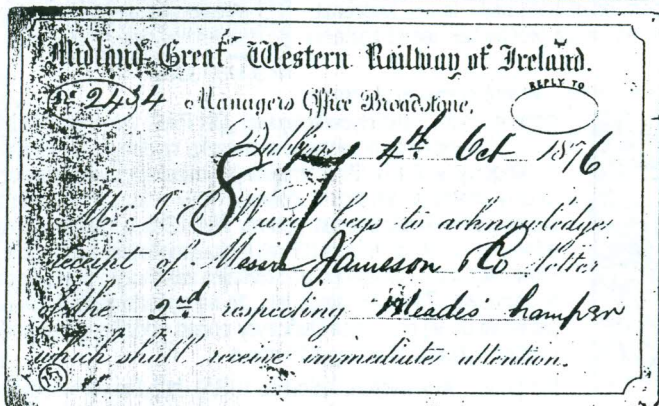 Midland Great Western Railway of Ireland.
No 2434 Managers Office Broadstone,
REPLY TO
Dublin 4th Oct 1876
87
Mr. J. E. Ward begs to acknowledge
receipt of Messrs Jameson & Co letter
of the 2nd respecting Meades' hamper
which shall receive immediate attention.